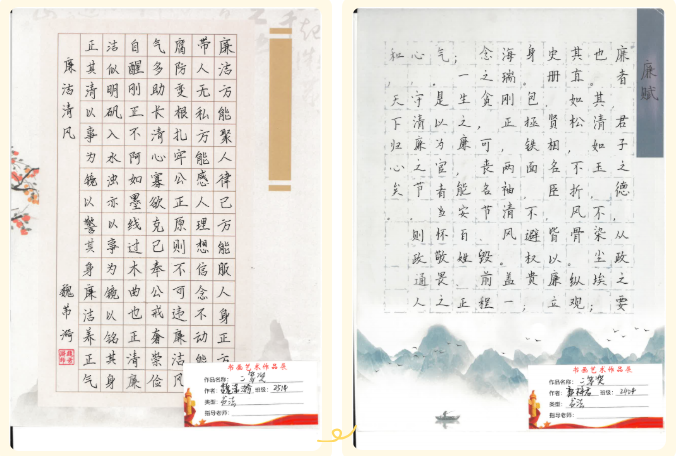 廉洁方能聚人律己方能服人身正方
带人无私方能感人理想信念不动能
腐防变根扎牢公正原则不可违廉洁风
气多助长清心寡欲克己奉公戒奢崇俭
自醒刚正不阿如墨线过木曲也正清廉
洁似明矾入水浊亦以事为镜以铭其身
正其清以事为镜以警其身廉洁养正气
廉洁清风 魏
书画艺术作品展
作品名称：二等奖
作者： 班级：
类型：书法
指导老师：
廉赋
廉者，君子之德，从政之要
也。其清如玉，不染尘埃；
其直如松，不折风骨。纵观
史册，贤相名臣，皆以廉立
身。包拯铁面，不避权贵；
海瑞刚正，两袖清风。盖一
念之贪，可丧名节，毁前程；
一生之廉，能安百姓，正
气；是以为官者当怀敬畏之
心，守清廉之节，则政通人
和，天下归心矣。
书画艺术作品展
作品名称：二等奖
作者： 班级：
类型：书法
指导老师：